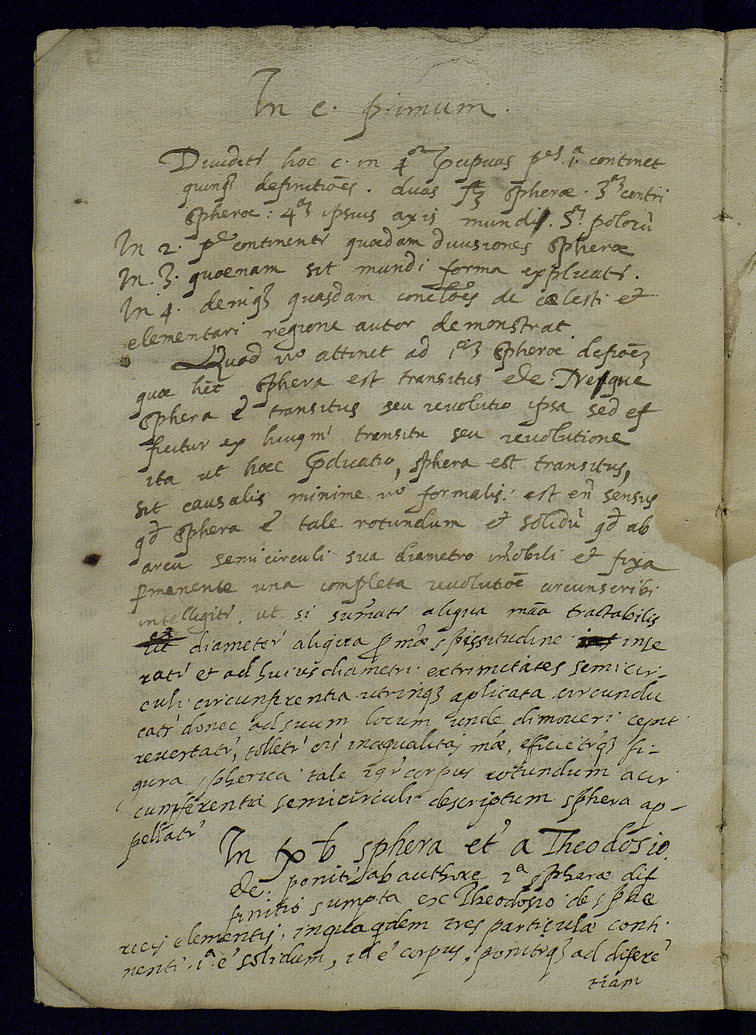 In c. primum.
Diuidetʳ hoc c. in 4ᵒʳ p͞cipuas pᵉˢ. 1ᵃ. continet
quinqȝ definitiões. duas spheræ. 3ᵃᵐ centri
spheræ: 4ᵃᵐ ipsius axis mundi. 5ᵃ. polorũ
In 2. pᵗᵉ continentʳ quædam diuisiones spheræ
In. 3. quænam sit mundi forma explicatʳ.
In 4. deniqȝ quasdam concłões de cælesti et
elementari regione autor demonstrat
Quod v͞o attinet ad 1ᵃᵐ spheræ defioẽȝ
quæ h̃et sphera est transitus &c. Neque
sphera ẽ transitus seu reuolutio ipsa sed ef
ficitur ex huiuqmⁱ transitu seu reuolutione
ita ut hæc p͞dicatio, sphera est transitus,
sit causalis minime v͞o formalis: est en̄ sensus
qđ sphera ẽ tale rotundum et solidũ qđ ab
arcu semicirculi sua diametro im̃obili et fixa
p̱manente una completa reuolutiõe circunscribi
intelligitʳ. ut si sumatʳ aliqua mãa tractabilis
diameterʳ aliqua p̱ mãe spissitudine inse
ratʳ et ad huius diametri extrimitates semicir-
culi circunferentia utrinqȝ aplicata circundu
catʳ donec ad suum locum unde dimoueri cepit
reuertatʳ, tolletʳ oīs inæqualitas mãe, efficietʳqȝ fi-
gura spherica. tale igʳ corpus rotundum a cir
cumferentia semicirculi descriptum sphera ap-
pellatʳ
In sphera etʳ a Theodosio.
&c. ponitʳ ab authore 2ᵃ spheræ dif
finitio sumpta ex Theodosio de sphe
ricis elementis, in qua qdem tres particulæ conti
nentʳ. 1ᵃ. ẽ solidum, id ẽ corpus, poniturqȝ ad diferẽ
tiam